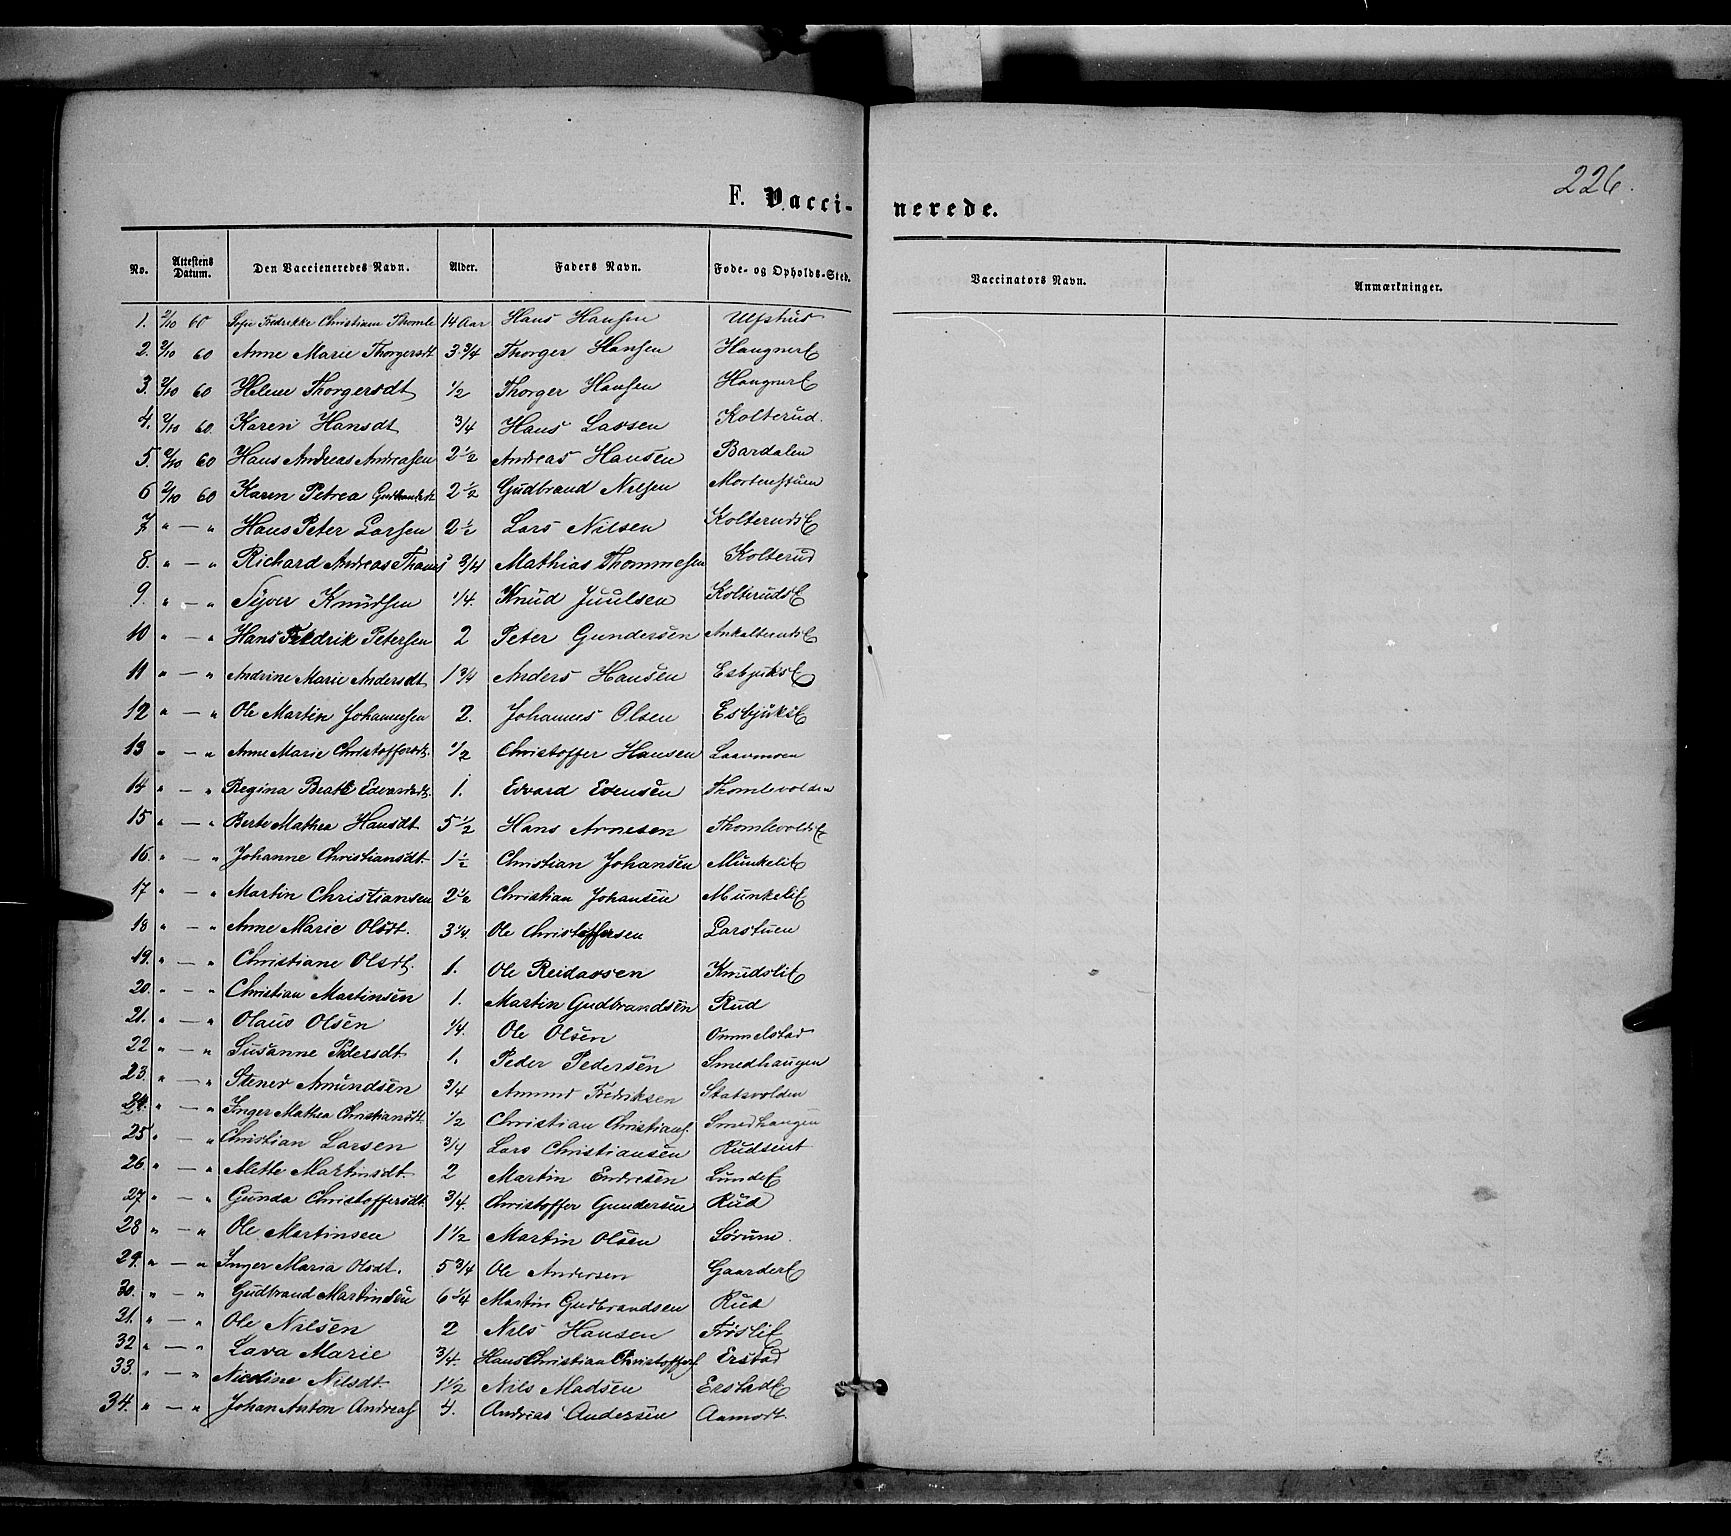 226.
F. Vacci- nerede.
No. Attestens Datum. Den Vaccieneredes Navn. Alder. Faders Navn. Fode- og Opholds-Sted. Vaccinators Navn. Anmærkninger.
1. 2/10 60 Fredrikke Christiane Thomle 14 Aar Hans Hansen Ulfshus
2. 2/10 60 Anne Marie Thorgersdt 3 3/4 Thorger Hansen HaugnerE
3. 2/10 60 Helene Thorgersdt 1/2 Thorger Hansen HaugnerE
4. 2/10 60. Karen Hansdt 3/4 Hans Larsen Kolterud.
5. 2/10 60 Hans Andreas Andreasen 2 1/2 Andreas Hansen Bardalen
6 2/10 60 Karen Petrea Gudbrandsdt 2 1/2 Gudbrand Nilsen Mortenstuen
7 " — " Hans Peter Larsen 2 1/2 Lars Nilsen KolterudsE
8. " — " Richard Andreas Thoms 3/4 Mathias Thommesen Kolterud
9. " — " Syver Knudsen 1/4. Knud Juulsen KolterudsE
10 " — " Hans Fredrik Petersen 2 Peter Gundersen
11 " — " Andrine Marie Andersdt 1 3/4 Anders Hansen EsbjuksE
12 " — " Ole Martin Johannesen 2. Johannes Olsen EsbjuksE
13 " — " Anne Marie Christoffersdt. 1/2 Christoffer Hansen Laavmoen
14 " — " Regina Beate Edvardsdt. 1. Edvard Evensen Thomlevolden
15 " — " Berte Mathea Hansdt 5 1/2 Hans Arnesen ThomlevoldsE
16. " — " Johanne Christiansdt. 1 1/2 Christian Johansen MunkeliE
17 " — " Martin Christiansen 2 1/2 Christian Johansen MunkeliE
18 " — " Anne Marie Olsdt. 3 1/4. Ole Christoffersen Larstuen
19. " — " Christiane Olsdt. 1. Ole Reidarsen KnudsliE
20. " — " Christian Martinsen 1. Martin Gudbrandsen Rud
21. " — " Olaus Olsen 1/4. Ole Olsen Ommelstad
22 " — " Susanne Pedersdt 1. Peder Pedersen Smedhaugen
23. " — " Stener Amundsen 3/4 Amund Fredriksen Statsvolden
24. " — " Inger Mathea Christiansdt. 1/2 Christian Christians. Smedhaugen
25 " — " Christian Larsen 3/4 Lars Christiansen Rudseiet
26. " — " Mette Martinsdt. 2 Martin Endresen LundeE
27 " — " Gunda Christoffersdt. 3/4. Christoffer Gundersen Rud
28 " — " Ole Martinsen 1 1/2 Martin Olsen Sørum.
29. " — " Inger Maria Olsdt. 5 3/4 Ole Andersen GaarderE
30. " — " Gudbrand Martinsen 6 1/4 Martin Gudbrandsen Rud
31. " — " Ole Nilsen 2 Nils Hansen FrøsliE
32 " — " Lava Marie 3/4. Hans Christian Christoffers Erstad
33. " — " Nicoline Nilsdt. 1 1/2 Nils Madsen ErstadE
34. " — " Johan Anton Andreas 4. Andreas Andersen Aamodt.